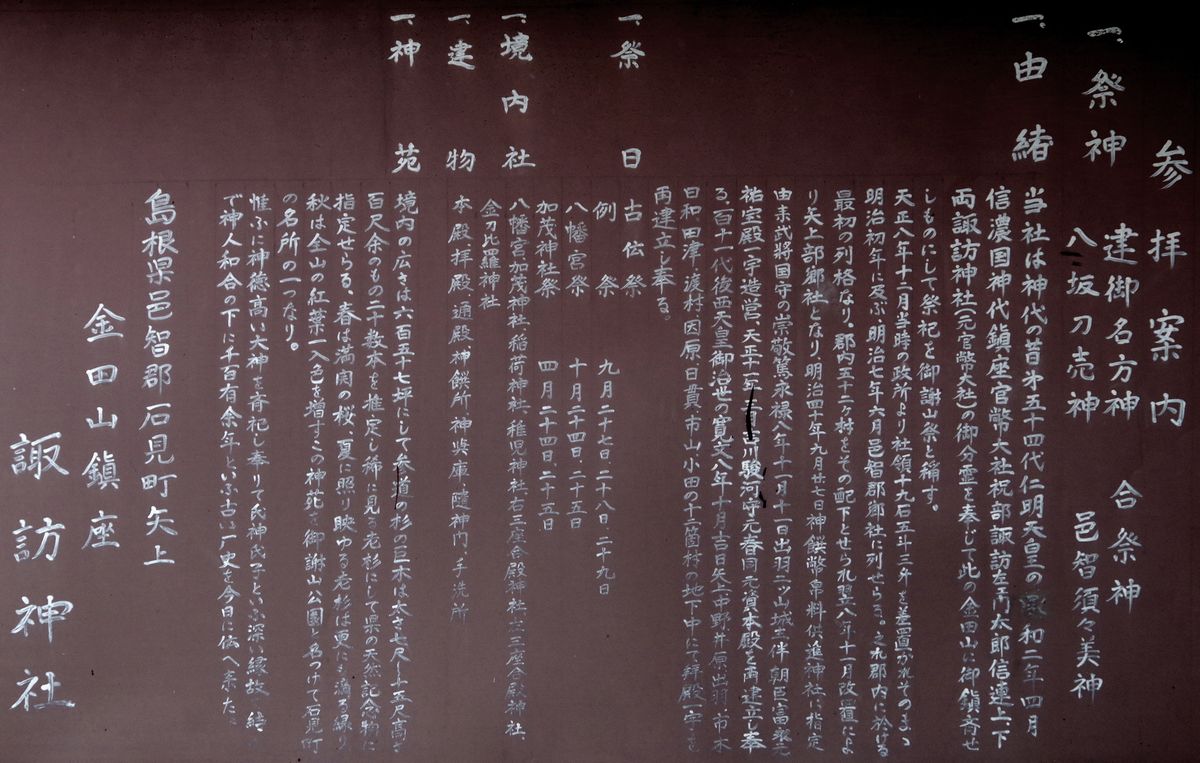 参拝案内
一、祭神 建御名方神 合祭神
八坂刀売神 邑智須々美神
一、由緒
当社は神代の昔第五十四代仁明天皇の承和二年四月
信濃国神代鎮座官幣大社祝部諏訪左エ門太郎信連上、下
両諏訪神社(元官幣大社)の御分霊を奉じて此の金田山に御鎮斉せ
しものにして祭祀を御謝山祭と稱す。
天正八年十二月当時の政所より社領十九石五斗二升を差置かれそのまゝ
明治初年に及ぶ、明治七年六月邑智郡郷社に列せらる。之れ郡内に於ける
最初の列格なり。郡内五十二ヶ村をその配下とせられ翌八年十一月改置によ
り矢上部郷社となり、明治四十年九月廿七日神饌幣帛料供進神社に指定
由来武将国守の崇敬篤く永禄八年十一月十一日出羽二ッ山城主伴朝臣富永元
祐宝殿一宇造営、天正十一年 吉川駿河守元春同元資本殿を再建立し奉
る、百十一代後西天皇御治世の寛文八年十月吉日矢上中野井原出羽市木
日和田津渡村因原日貫市山小田の十二箇村の地下中にて拝殿一宇を
再建立し奉る。
一、祭日
古伝祭
例祭 九月二十七日、二十八日、二十九日
八幡宮祭 十月二十四日、二十五日
加茂神社祭 四月二十四日、二十五日
一、境内社
八幡宮加茂神社、稲荷神社、稚児神社右三座合殿神社、六三座合殿神社、
金刀比羅神社
一、建物
本殿、拝殿、通殿神饌所、神輿庫、随神門、手洗所
一、神苑
境内の広さは六百五十七坪にして参道の杉の巨木は太さ七尺〜五尺高さ
百尺余のもの二十数本を推定し稀に見る老杉にして県の天然記念物に
指定せらる、春は満肉の桜、夏に照り映ゆる老杉は更にも滴る緑り
秋は全山の紅葉一入色を増すこの神苑を御謝山公園と名つけて石見町
の名所の一つなり。
惟ふに神徳高い大神を斉祀し奉りて氏神氏子といふ深い縁故 結
で神人和合の下に千百有余年といふ古い歴史を今日に伝へ来た
島根県邑智郡石見町矢上
金田山鎮座
諏訪神社